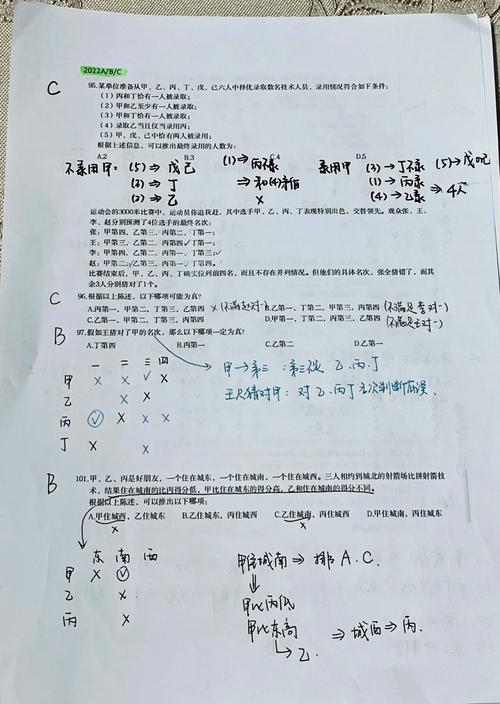 2022A/B/C
C
95.某单位准备从甲、乙、丙、丁、戊、己六人中择优录取数名技术人员，录用情况符合如下条件：
（1）丙和丁恰有一人被录取；
（2）甲和乙至少有一人被录取；
（3）甲和丁恰有一人被录取；
（4）录取乙当且仅当录用丙；
（5）甲、戊、己中恰有两人被录用；
根据上述信息，可以推出最终录用的人数为：
A.2 B.3 C.4 D.5
不录用甲：(5) ⇒ 戊己 (1) ⇒ 丙不录 录用甲 (3) ⇒ 丁不录 (5) ⇒ 戊/己
(3) ⇒ 丁 ⇒ 和(4)矛盾 (1) ⇒ 丙录 ⇒ 4人
(2) ⇒ 乙 × (4) ⇒ 乙录
运动会的3000米比赛中，运动员你追我赶，其中选手甲、乙、丙、丁表现特别出色，交替领先。观众张、王、
李、赵分别预测了4位选手的最终名次：
张：甲第四，乙第三，丙第二，丁第一；
王：甲第三，乙第二，丙第四，丁第一；
李：甲第四，乙第二，丙第一，丁第三；
赵：甲第二，乙第三，丙第一，丁第四。
比赛结束后，甲、乙、丙、丁确实位列前四名，而且不存在并列情况。但他们的具体名次，张全猜错了，而其
余3人分别猜对了1个。
C
96.根据以上陈述，以下哪项可能为真？
A.丙第一，甲第二，丁第三，乙第四 ×(不满足赵对一) B.乙第一，丁第二，甲第三，丙第四 (不满足李对一)
C.乙第一，甲第二，丁第三，丙第四 D.甲第一，丁第二，丙第三，乙第四 (不满足王对一)
B
97.假如王猜对了甲的名次，那么以下哪项一定为真？
A.丁第四 B.丙第一 C.乙第二 D.乙第一
一 二 三 四
甲 × × ✓ ×
乙 × ×
丙 ✓ × × ×
丁 × ×
甲→第三
王只猜对甲：对乙、丙、丁名次判断有误.
B
101.甲、乙、丙是好朋友，一个住在城东，一个住在城南，一个住在城西。三人相约到城北的射箭场比拼射箭技
术，结果住在城南的比丙得分低，甲比住在城东的得分高，乙和住在城南的得分不同。
根据以上陈述，可以推出以下哪项：
A.甲住城西，乙住城东 B.乙住城东，丙住城西 C.乙住城南，丙住城西 D.甲住城南，丙住城东
× ×
东 南 西
甲 × ✓
乙 ×
丙 ×
甲住城南 ⇒ 排A.C.
甲比丙低
甲比东高 ⇒ 城西 ⇒ 丙.
乙.